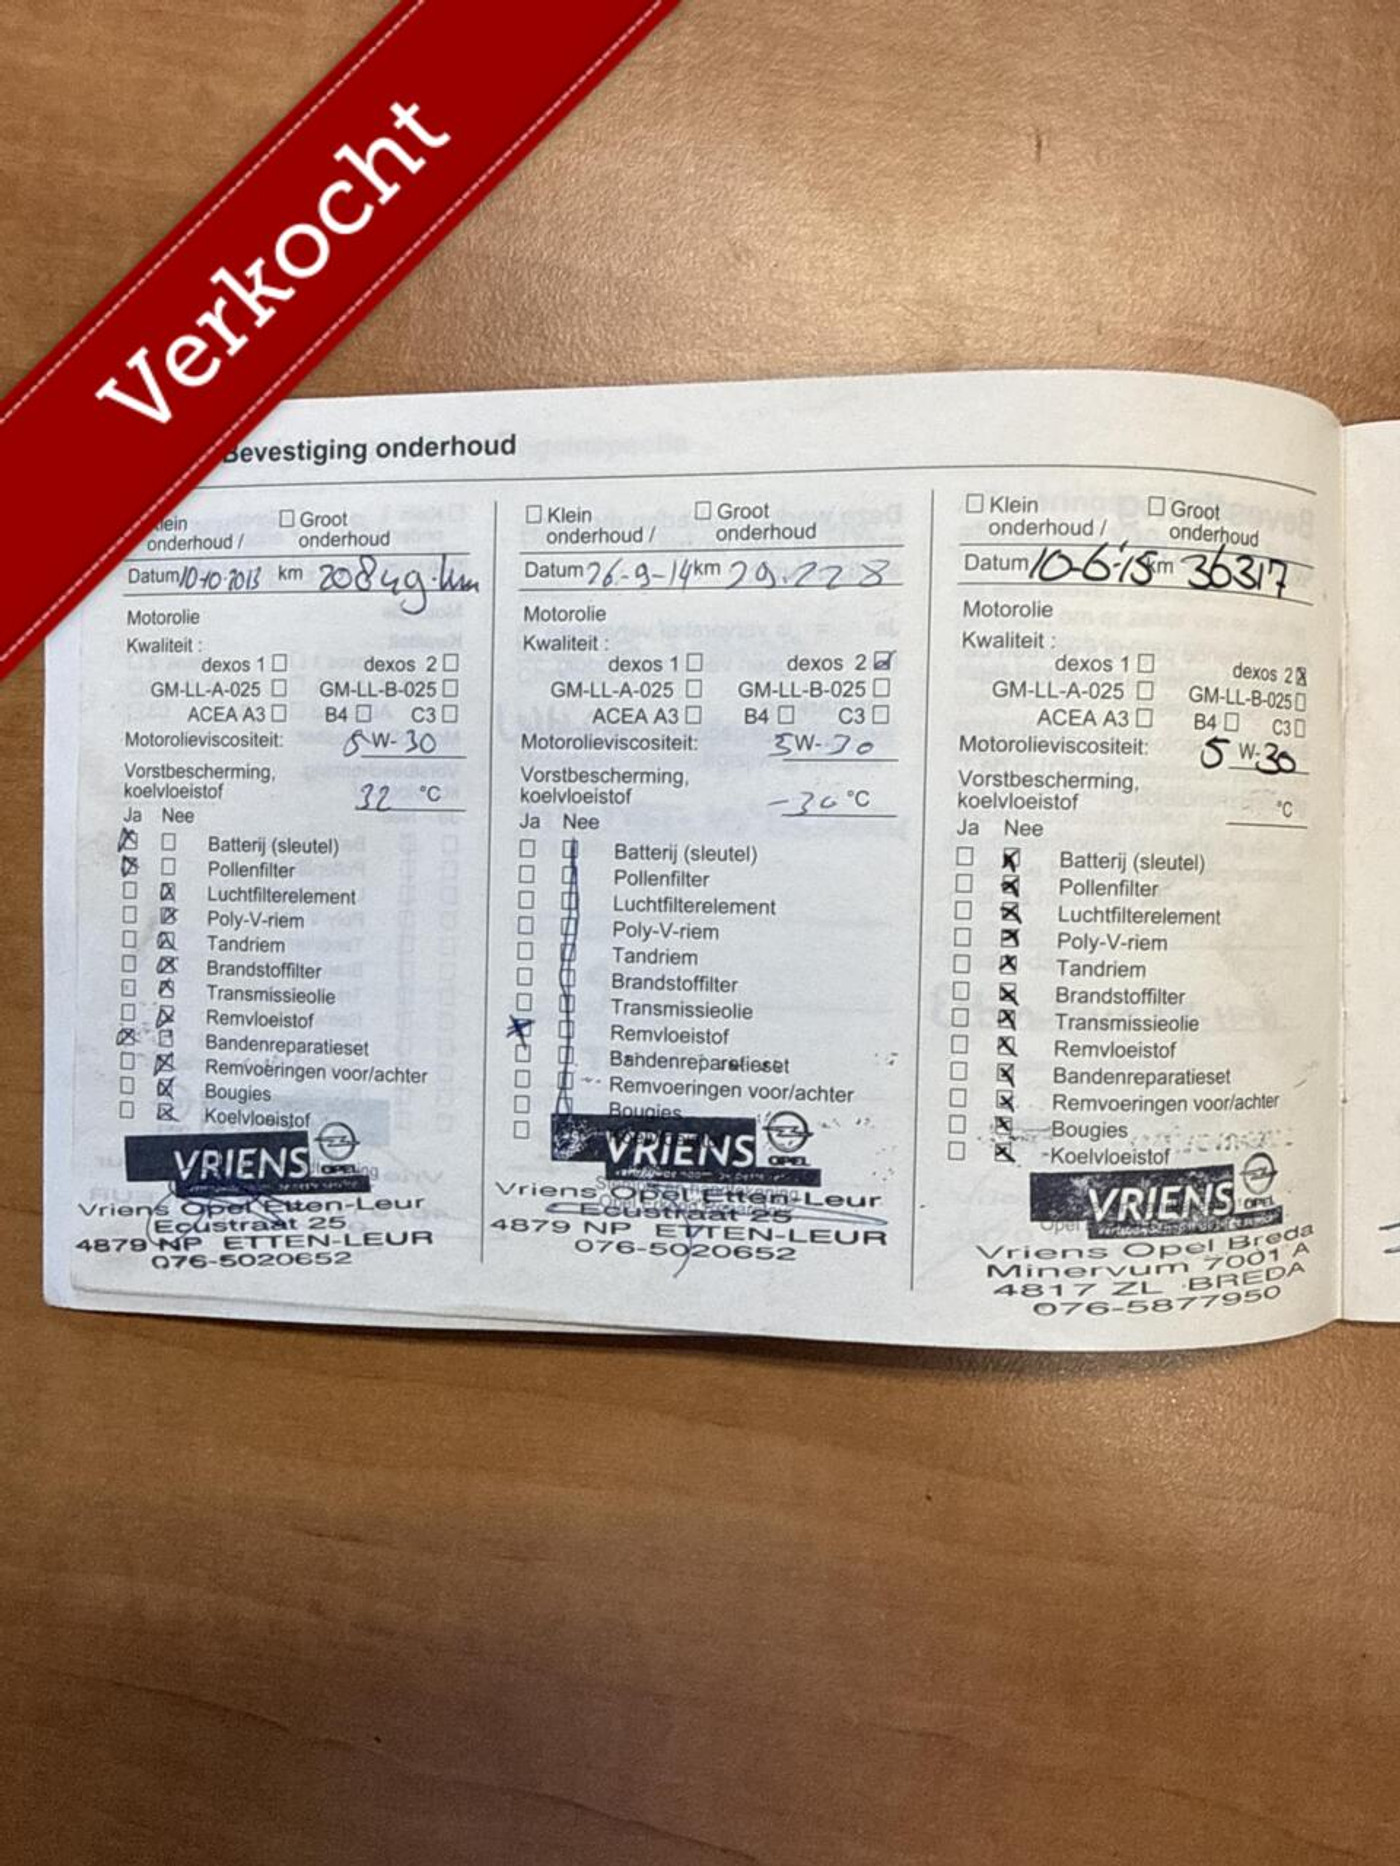 Verkocht
Bevestiging onderhoud
lein
onderhoud /
Groot
onderhoud
Datum 10-10-2013 km 20849.km
Motorolie
Kwaliteit :
dexos 1 dexos 2
GM-LL-A-025 GM-LL-B-025
ACEA A3 B4 C3
Motorolieviscositeit: 5 W-30
Vorstbescherming,
koelvloeistof 32 °C
Ja Nee
Batterij (sleutel)
Pollenfilter
Luchtfilterelement
Poly-V-riem
Tandriem
Brandstoffilter
Transmissieolie
Remvloeistof
Bandenreparatieset
Remvoeringen voor/achter
Bougies
Koelvloeistof
VRIENS OPEL
Vriens Opel Etten-Leur
Ecustraat 25
4879 NP ETTEN-LEUR
076-5020652
Klein
onderhoud /
Groot
onderhoud
Datum 26-9-14 km 29.228
Motorolie
Kwaliteit :
dexos 1 dexos 2
GM-LL-A-025 GM-LL-B-025
ACEA A3 B4 C3
Motorolieviscositeit: 5W-30
Vorstbescherming,
koelvloeistof -30 °C
Ja Nee
Batterij (sleutel)
Pollenfilter
Luchtfilterelement
Poly-V-riem
Tandriem
Brandstoffilter
Transmissieolie
Remvloeistof
Bandenreparatieset
Remvoeringen voor/achter
Bougies
VRIENS OPEL
Vriens Opel Etten-Leur
Ecustraat 25
4879 NP ETTEN-LEUR
076-5020652
Klein
onderhoud /
Groot
onderhoud
Datum 10-6-'15 km 36317
Motorolie
Kwaliteit :
dexos 1 dexos 2
GM-LL-A-025 GM-LL-B-025
ACEA A3 B4 C3
Motorolieviscositeit: 5 W-30
Vorstbescherming,
koelvloeistof °C
Ja Nee
Batterij (sleutel)
Pollenfilter
Luchtfilterelement
Poly-V-riem
Tandriem
Brandstoffilter
Transmissieolie
Remvloeistof
Bandenreparatieset
Remvoeringen voor/achter
Bougies
Koelvloeistof
VRIENS OPEL
Vriens Opel Breda
Minervum 7001 A
4817 ZL BREDA
076-5877950